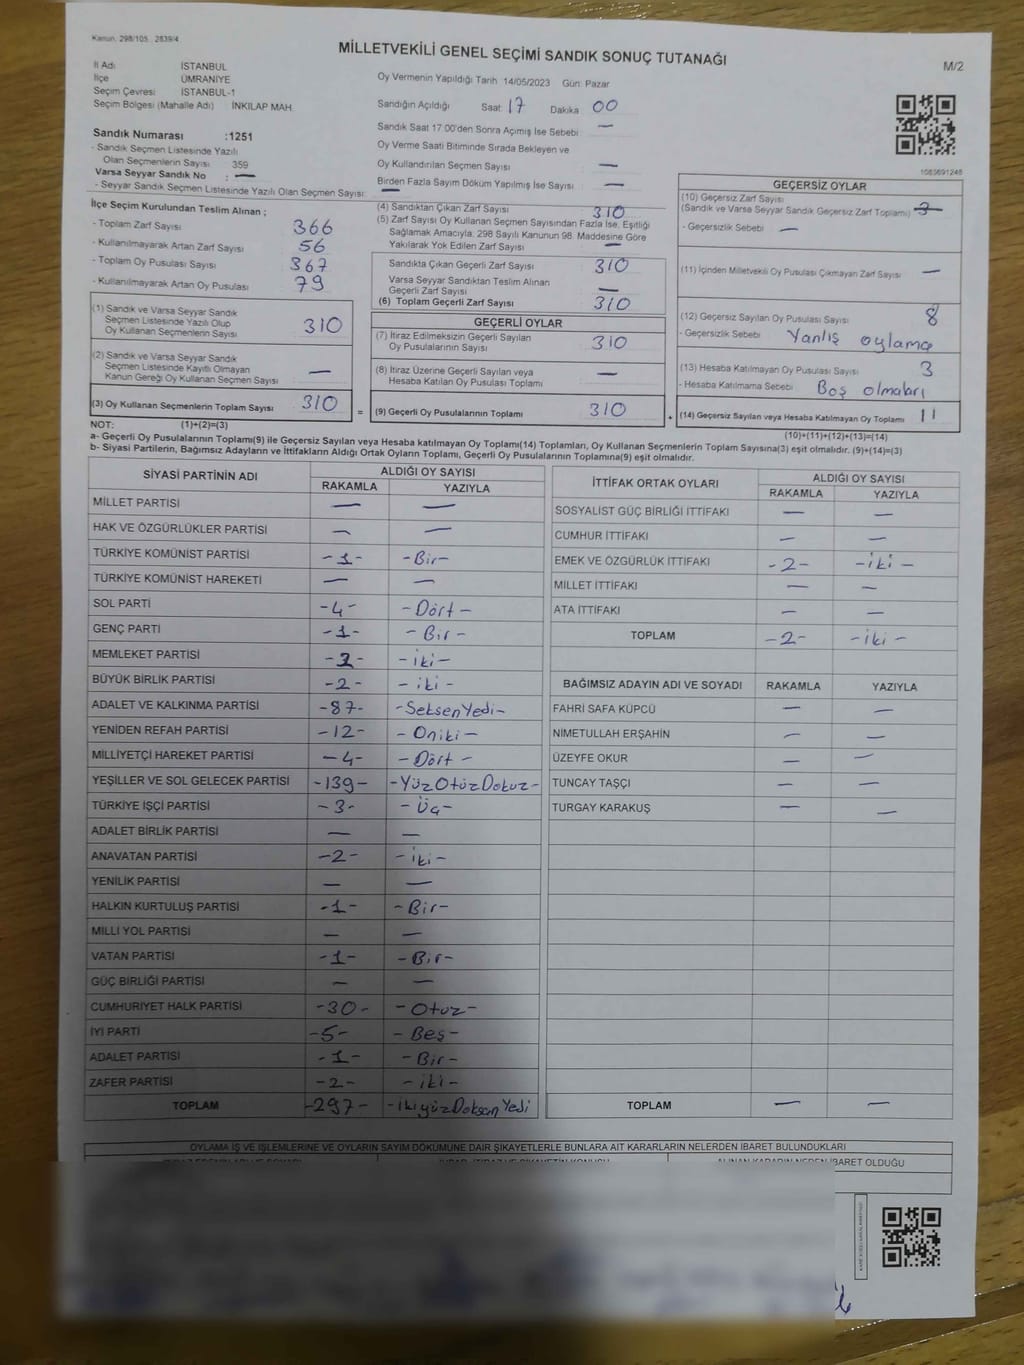 Kanun. 298/105 , 2839/4
MİLLETVEKİLİ GENEL SEÇİMİ SANDIK SONUÇ TUTANAĞI
M/2
İl Adı İSTANBUL
İlçe ÜMRANİYE
Seçim Çevresi İSTANBUL-1
Seçim Bölgesi (Mahalle Adı) İNKILAP MAH.
Oy Vermenin Yapıldığı Tarih 14/05/2023 Gün: Pazar
Sandığın Açıldığı Saat 17 Dakika 00
Sandık Saat 17:00'den Sonra Açımış İse Sebebi —
Oy Verme Saati Bitiminde Sırada Bekleyen ve
Oy Kullandırılan Seçmen Sayısı —
Birden Fazla Sayım Döküm Yapılmış İse Sayısı —
Sandık Numarası :1251
- Sandık Seçmen Listesinde Yazılı
Olan Seçmenlerin Sayısı 359
Varsa Seyyar Sandık No : —
- Seyyar Sandık Seçmen Listesinde Yazılı Olan Seçmen Sayısı: —
1083691248
İlçe Seçim Kurulundan Teslim Alınan ;
- Toplam Zarf Sayısı 366
- Kullanılmayarak Artan Zarf Sayısı 56
- Toplam Oy Pusulası Sayısı 367
- Kullanılmayarak Artan Oy Pusulası 79
(1) Sandık ve Varsa Seyyar Sandık
Seçmen Listesinde Yazılı Olup
Oy Kullanan Seçmenlerin Sayısı 310
(2) Sandık ve Varsa Seyyar Sandık
Seçmen Listesinde Kayıtlı Olmayan
Kanun Gereği Oy Kullanan Seçmen Sayısı —
(3) Oy Kullanan Seçmenlerin Toplam Sayısı 310
(4) Sandıktan Çıkan Zarf Sayısı 310
(5) Zarf Sayısı Oy Kullanan Seçmen Sayısından Fazla İse, Eşitliği
Sağlamak Amacıyla, 298 Sayılı Kanunun 98. Maddesine Göre
Yakılarak Yok Edilen Zarf Sayısı —
Sandıkta Çıkan Geçerli Zarfa Sayısı 310
Varsa Seyyar Sandıktan Teslim Alınan
Geçerli Zarf Sayısı —
(6) Toplam Geçerli Zarf Sayısı 310
GEÇERLİ OYLAR
(7) İtiraz Edilmeksizin Geçerli Sayılan
Oy Pusulalarının Sayısı 310
(8) İtiraz Üzerine Geçerli Sayılan veya
Hesaba Katılan Oy Pusulası Toplamı —
= (9) Geçerli Oy Pusulalarının Toplamı 310
GEÇERSİZ OYLAR
(10) Geçersiz Zarf Sayısı
(Sandık ve Varsa Seyyar Sandık Geçersiz Zarf Toplamı)
- Geçersizlik Sebebi —
(11) İçinden Milletvekili Oy Pusulası Çıkmayan Zarf Sayısı —
(12) Geçersiz Sayılan Oy Pusulası Sayısı 8
- Geçersizlik Sebebi Yanlış oylama
(13) Hesaba Katılmayan Oy Pusulası Sayısı 3
- Hesaba Katılmama Sebebi Boş olmaları
+ (14) Geçersiz Sayılan veya Hesaba Katılmayan Oy Toplamı 11
NOT: (1)+(2)=(3)
(10)+(11)+(12)+(13)=(14)
a- Geçerli Oy Pusulalarının Toplamı(9) ile Geçersiz Sayılan veya Hesaba katılmayan Oy Toplamı(14) Toplamları, Oy Kullanan Seçmenlerin Toplam Sayısına(3) eşit olmalıdır. (9)+(14)=(3)
b- Siyasi Partilerin, Bağımsız Adayların ve İttifakların Aldığı Ortak Oyların Toplamı, Geçerli Oy Pusulalarının Toplamına(9) eşit olmalıdır.
SİYASİ PARTİNİN ADI ALDIĞI OY SAYISI
RAKAMLA YAZIYLA
MİLLET PARTİSİ — —
HAK VE ÖZGÜRLÜKLER PARTİSİ — —
TÜRKİYE KOMÜNİST PARTİSİ -1- -Bir-
TÜRKİYE KOMÜNİST HAREKETİ — —
SOL PARTİ -4- -Dört-
GENÇ PARTİ -1- -Bir-
MEMLEKET PARTİSİ -2- -iki-
BÜYÜK BİRLİK PARTİSİ -2- -iki-
ADALET VE KALKINMA PARTİSİ -87- -SeksenYedi-
YENİDEN REFAH PARTİSİ -12- -Oniki-
MİLLİYETÇİ HAREKET PARTİSİ -4- -Dört-
YEŞİLLER VE SOL GELECEK PARTİSİ -139- -YüzOtuzDokuz-
TÜRKİYE İŞÇİ PARTİSİ -3- -Üç-
ADALET BİRLİK PARTİSİ — —
ANAVATAN PARTİSİ -2- -iki-
YENİLİK PARTİSİ — —
HALKIN KURTULUŞ PARTİSİ -1- -Bir-
MİLLİ YOL PARTİSİ — —
VATAN PARTİSİ -1- -Bir-
GÜÇ BİRLİĞİ PARTİSİ — —
CUMHURİYET HALK PARTİSİ -30- -Otuz-
İYİ PARTİ -5- -Beş-
ADALET PARTİSİ -1- -Bir-
ZAFER PARTİSİ -2- -iki-
TOPLAM -297- -ikiyüzDoksanYedi
İTTİFAK ORTAK OYLARI ALDIĞI OY SAYISI
RAKAMLA YAZIYLA
SOSYALİST GÜÇ BİRLİĞİ İTTİFAKI — —
CUMHUR İTTİFAKI — —
EMEK VE ÖZGÜRLÜK İTTİFAKI -2- -iki-
MİLLET İTTİFAKI — —
ATA İTTİFAKI — —
TOPLAM -2- -iki-
BAĞIMSIZ ADAYIN ADI VE SOYADI RAKAMLA YAZIYLA
FAHRİ SAFA KÜPCÜ — —
NİMETULLAH ERŞAHİN — —
ÜZEYFE OKUR — —
TUNCAY TAŞÇI — —
TURGAY KARAKUŞ — —
TOPLAM — —
OYLAMA İŞ VE İŞLEMLERİNE VE OYLARIN SAYIM DÖKÜMÜNE DAİR ŞİKAYETLERLE BUNLARA AİT KARARLARIN NELERDEN İBARET BULUNDUKLARI
ALINAN KARARIN NEDEN İBARET OLDUĞU